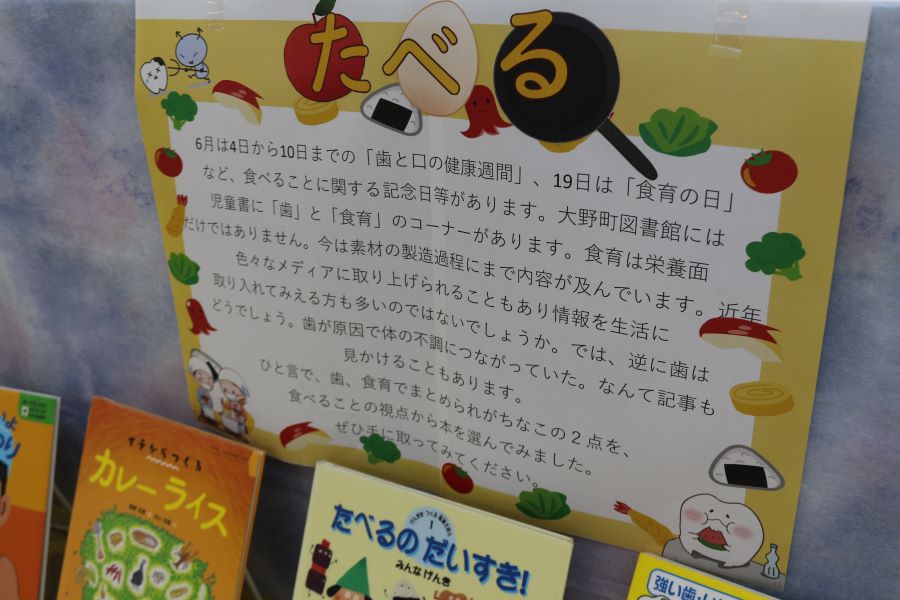 たべる
6月は4日から10日までの「歯と口の健康週間」、19日は「食育の日」
など、食べることに関する記念日等があります。大野町図書館には
児童書に「歯」と「食育」のコーナーがあります。食育は栄養面
だけではありません。今は素材の製造過程にまで内容が及んでいます。近年
色々なメディアに取り上げられることもあり情報を生活に
取り入れてみえる方も多いのではないでしょうか。では、逆に歯は
どうでしょう。歯が原因で体の不調につながっていた。なんて記事も
見かけることもあります。
ひと言で、歯、食育でまとめられがちなこの2点を、
食べることの視点から本を選んでみました。
ぜひ手に取ってみてください。
イチからつくる
カレーライス
1
たべるの だいすき!
みんなげんき
強い歯・